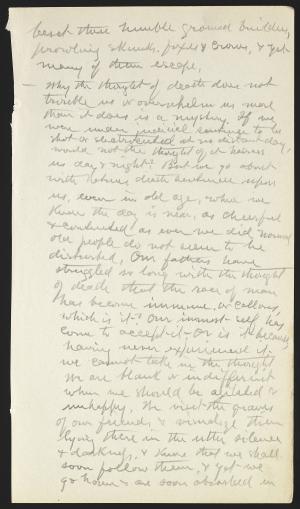 beset these humble ground builders,
prowling skunks, foxes & crows, & yet
many of them escape.
— Why the thought of death does not
trouble us or overwhelm us more
than it does is a mystery. If we
were under judicial sentence to be
shot or electrocuted at no distant day,
would not the thought of it haunt
us day & night? But we go about
with Nature's death sentence upon
us, even in old age, when we
know the day is near, as cheerful
& contented as ever we did. Normal
old people do not seem to be
disturbed. Our fathers have
struggled so long with the thought
of death that the race of man
has become immune, or callous,
which is it? Our inmost self has
come to accept it. Or is it because,
having never experienced it,
we cannot take in the thought.
We are blank or indifferent
when we should be agitated &
unhappy. We visit the graves
of our friends, & visualize them
lying there in the utter silence
& darkness, & know that we shall
soon follow them, & yet we
go home & are soon absorbed in